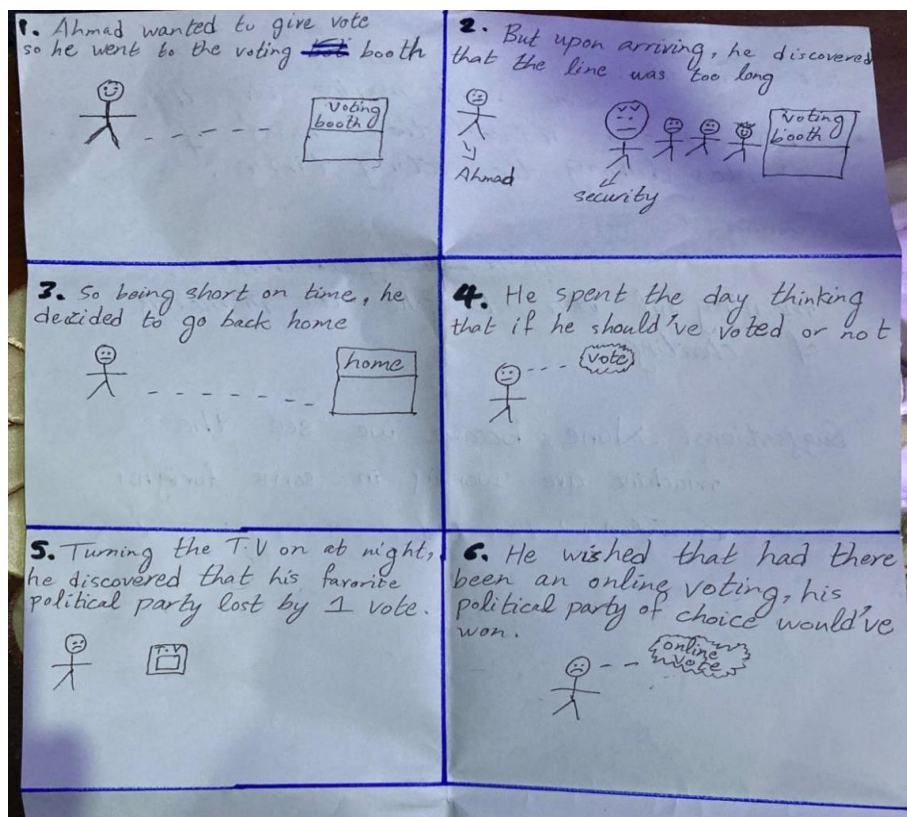 1. Ahmad wanted to give vote
so he went to the voting booth
voting
booth
2. But upon arriving, he discovered
that the line was too long
Ahmad
security
voting
booth
3. So being short on time, he
decided to go back home
home
4. He spent the day thinking
that if he should've voted or not
vote
5. Turning the T.V on at night,
he discovered that his favorite
political party lost by 1 vote.
T.V
6. He wished that had there
been an online voting, his
political party of choice would've
won.
online
vote